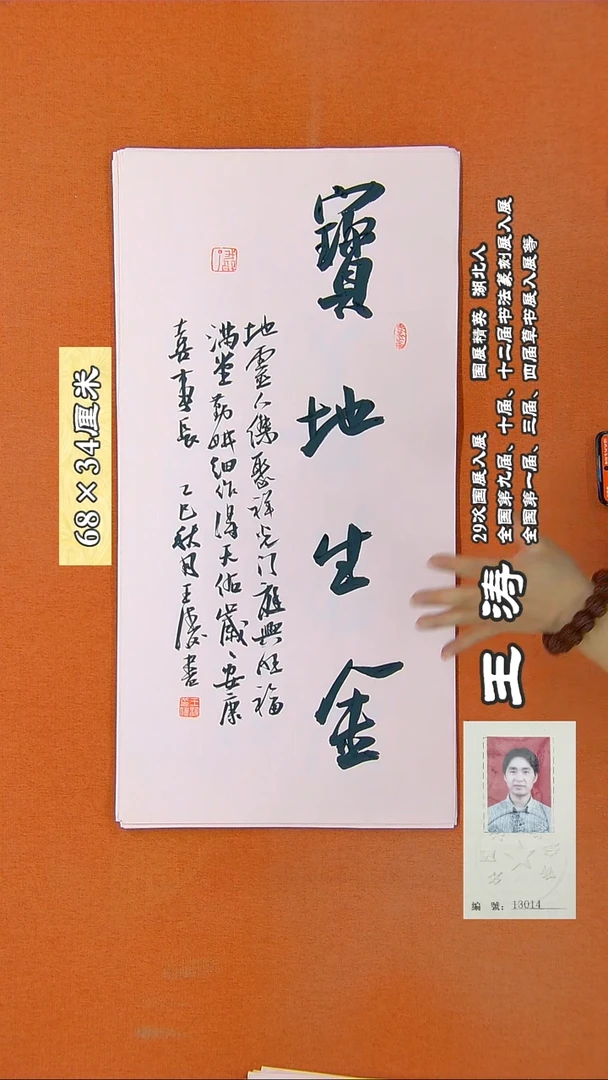 寶地生金
地靈人傑聚祥光門庭興旺福
滿堂勤耕細作得天佑歲、安康
喜事長 乙巳秋月王濤書
68×34厘米
王涛
29次国展入展 国展精英 湖北人
全国第九届、十届、十二届书法篆刻展入展
全国第一届、三届、四届草书展入展等
編 號：13014